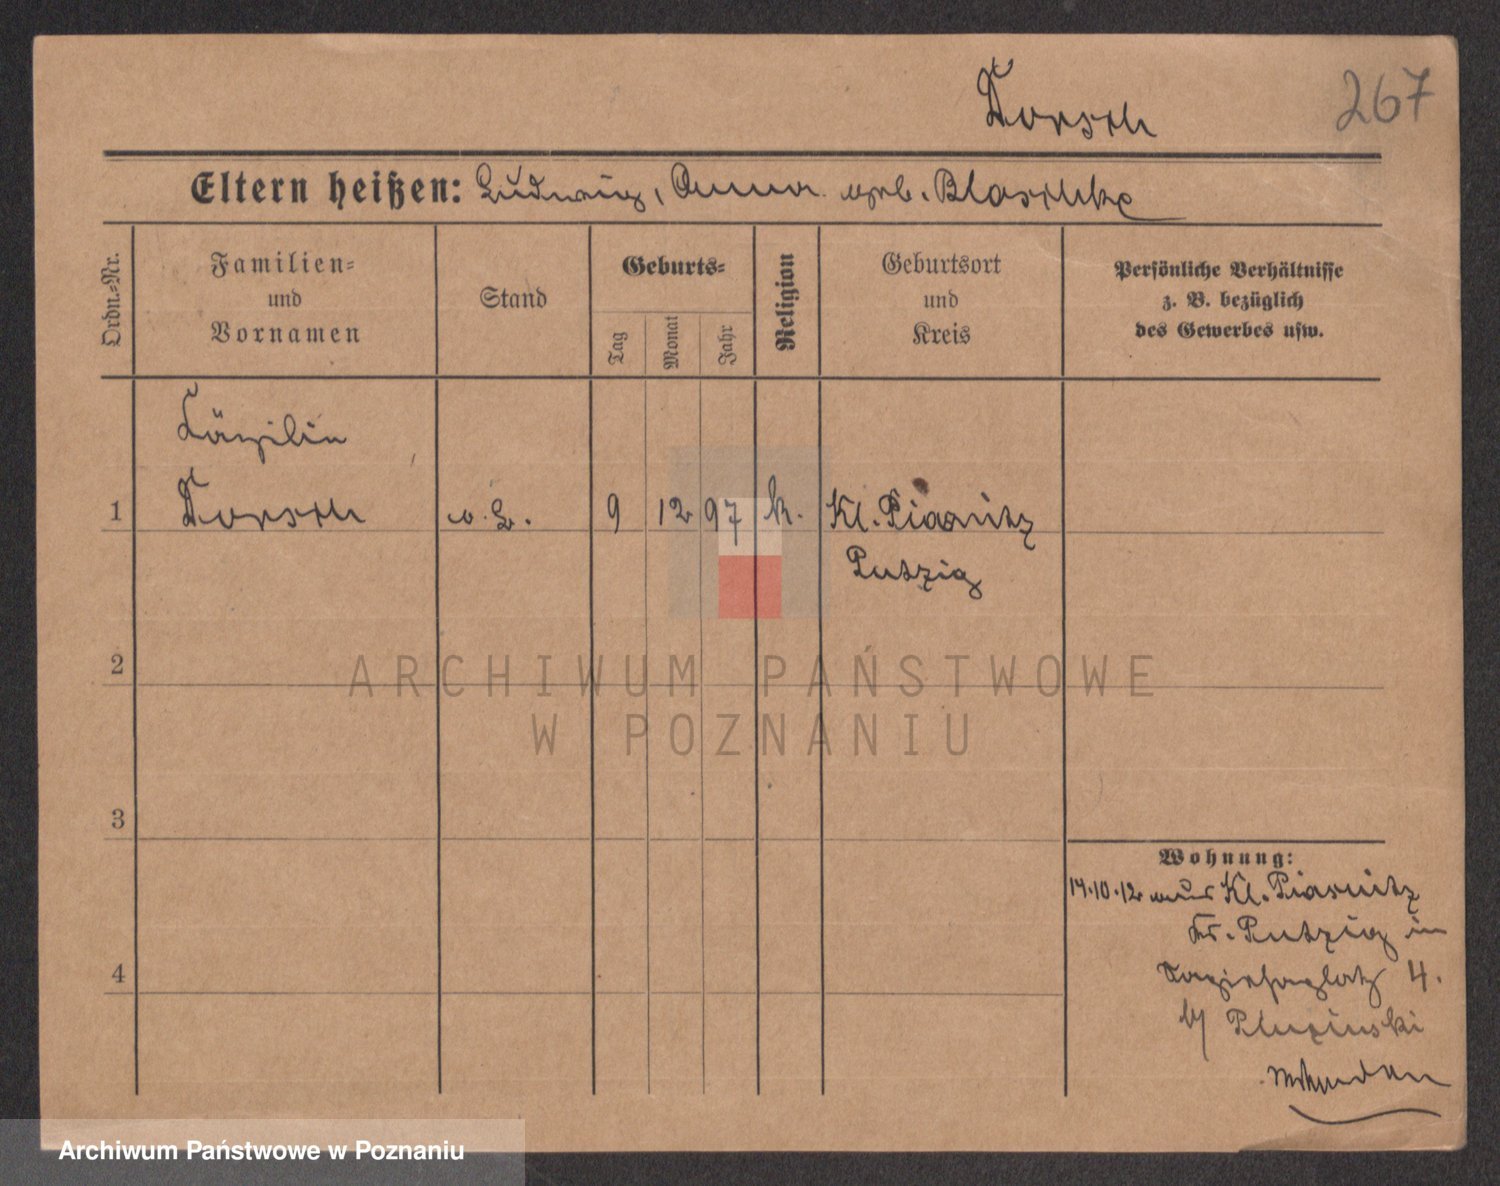 Dorsch
267
Eltern heißen: Ludwig, Anna geb. Blaschke
Ordn.=Nr.
Familien=
und
Vornamen
Stand
Geburts=
Tag
Monat
Jahr
Religion
Geburtsort
und
Kreis
Persönliche Verhältnisse
z. B. bezüglich
des Gewerbes usw.
Cäzilie
1 Dorsch o. G. 9 12 97 k. Kl. Piasnitz
Putzig
2
ARCHIWUM PAŃSTWOWE
W POZNANIU
3
4
Wohnung:
14.10.12 aus Kl. Piasnitz
Kr. Putzig in
4.
b/
Archiwum Państwowe w Poznaniu